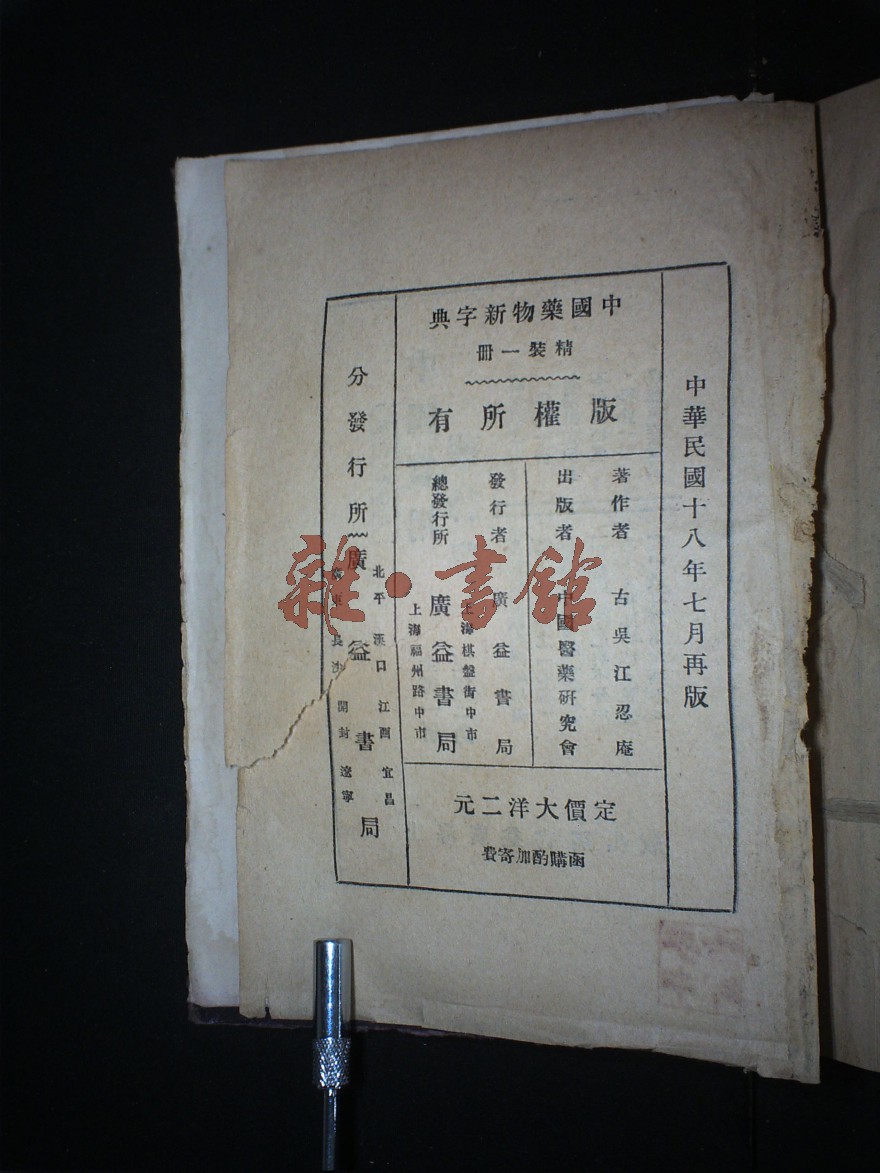 中華民國十八年七月再版
中國藥物新字典
精裝一冊
版權所有
著作者 古吳江忍庵
出版者 中國醫藥研究會
發行者 廣益書局
上海棋盤街中市
總發行所 廣益書局
上海福州路中市
定價大洋二元
函購酌加寄費
北平 漢口 江西 宜昌
分發行所 廣益書局
廣東 長沙 開封 遼寧
雜·書館